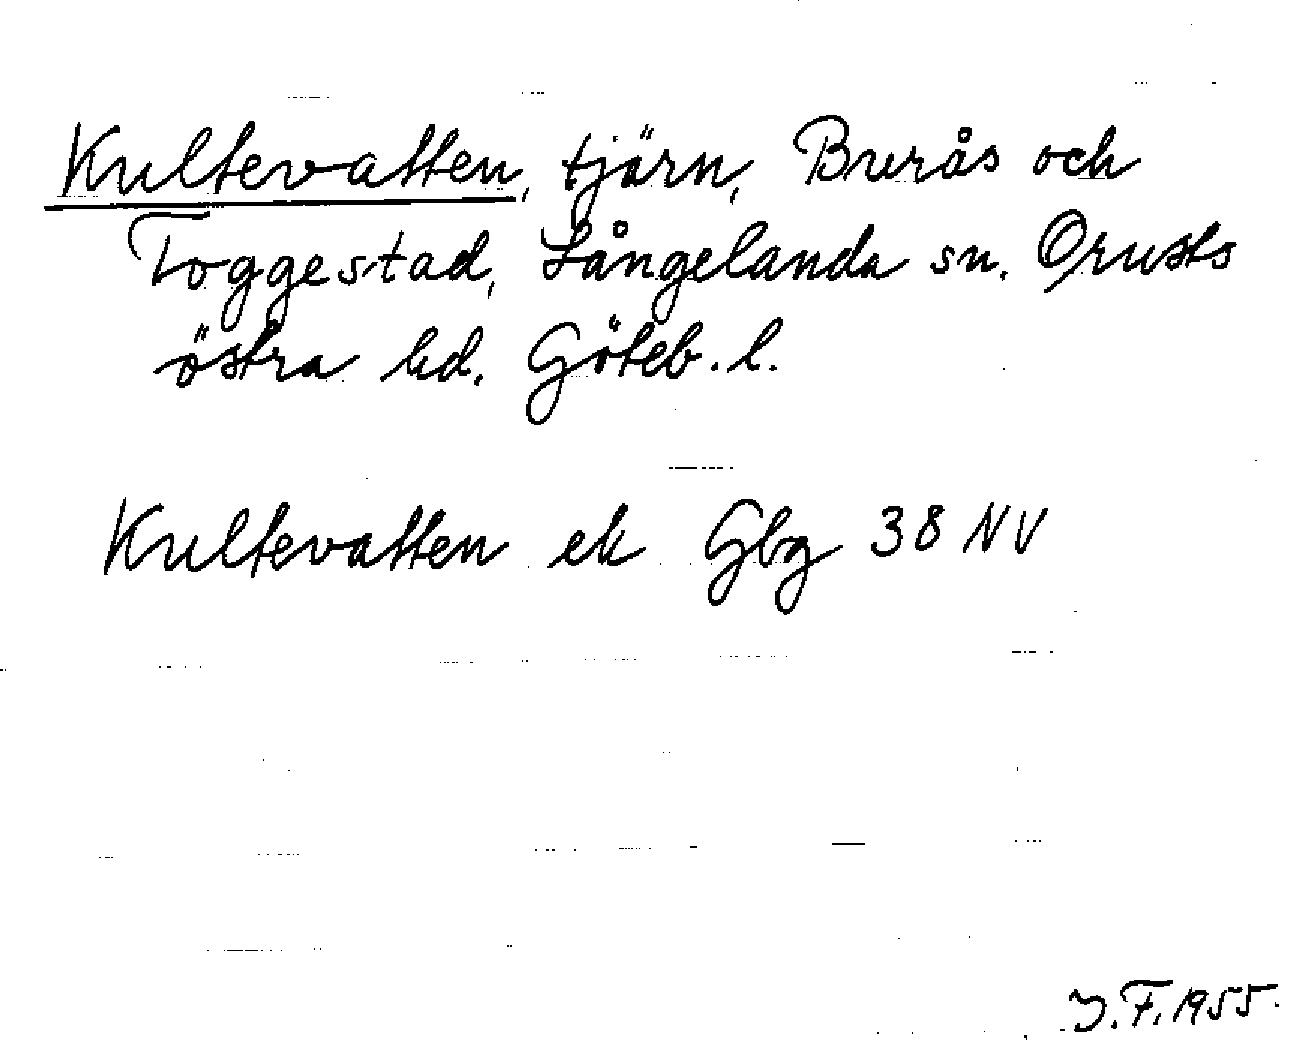 Kultevatten, tjärn, Burås och
Toggestad, Långelanda sn. Orusts
östra hd. Göteb. l.
Kultevatten ek Gbg 38 NV
J.F. 1955.